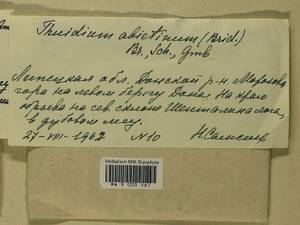 Thuidium abietinum (Brid.)
Br., Sch., Gmb.
Липецкая обл. Донской р-н. Морозова
гора на левом берегу Дона. На краю
обрыва на сев. склоне
в дубовом лесу.
27-VIII-1962 N10
Herbarium MW, Bryophyta
MW 9 000 567